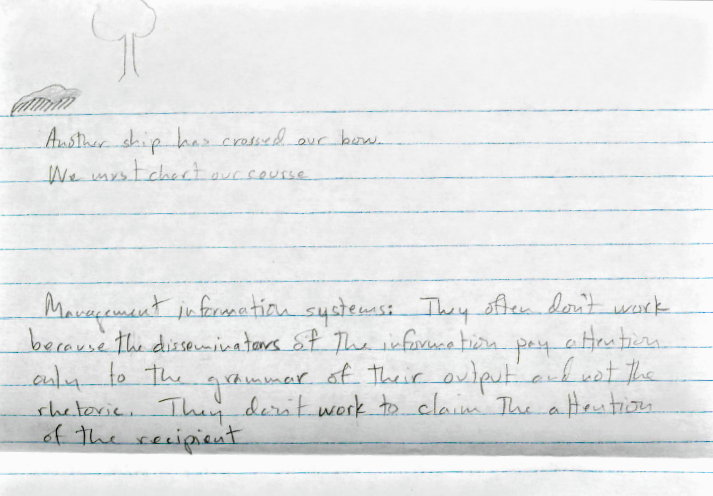 Another ship has crossed our bow.
We must chart our course
Management information systems: They often don't work
because the disseminators of the information pay attention
only to the grammar of their output and not the
rhetoric. They don't work to claim the attention
of the recipient